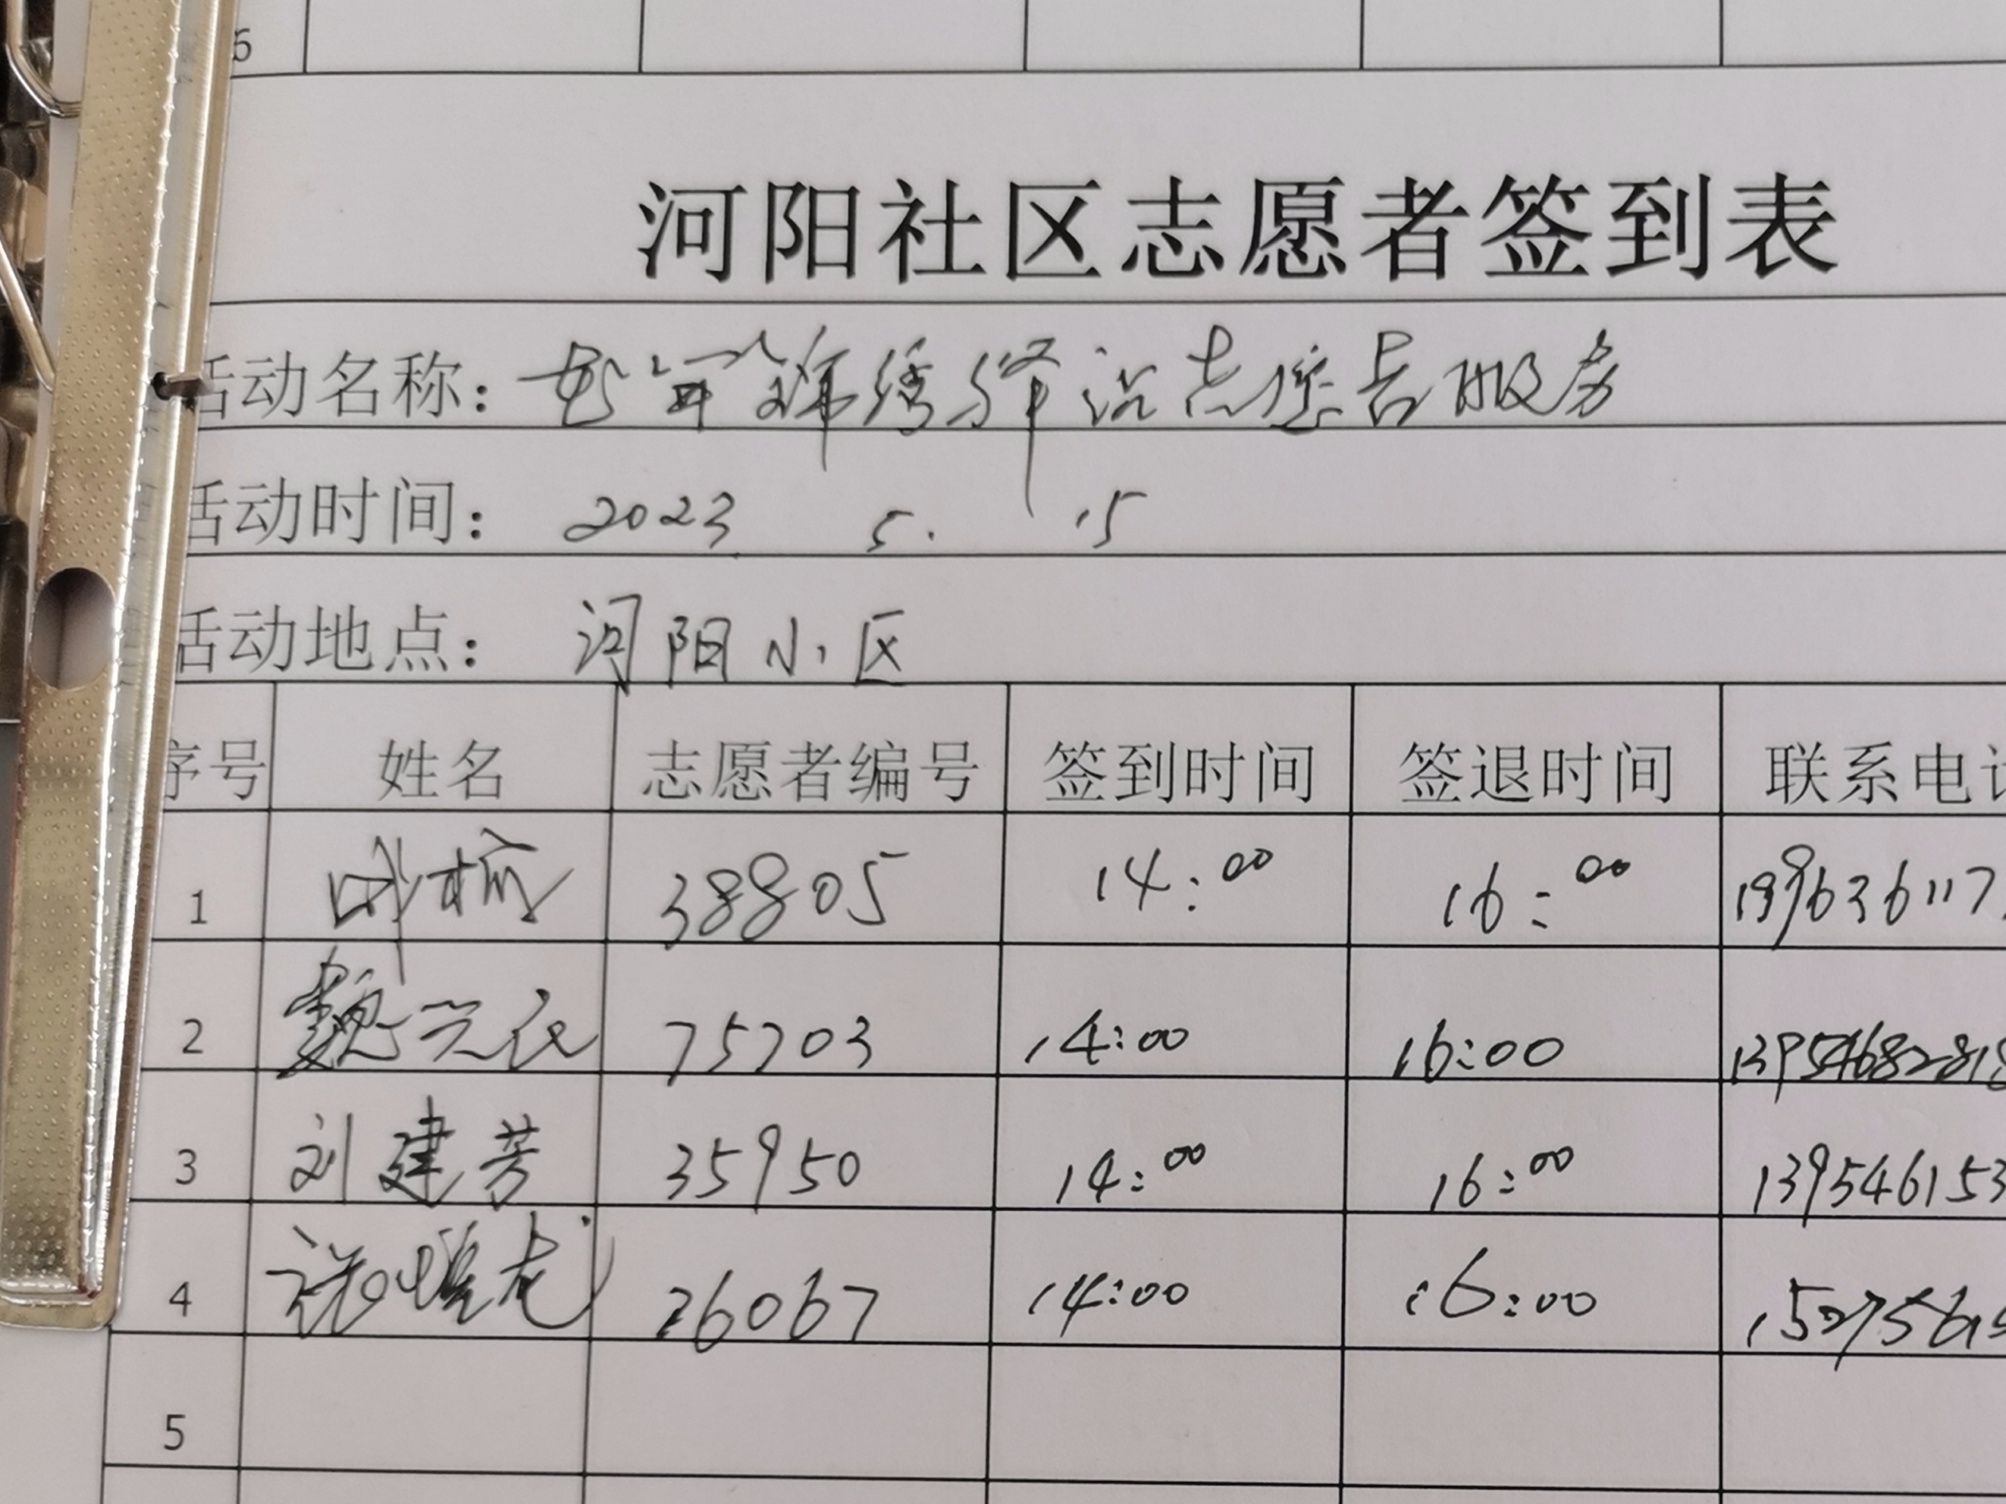 河阳社区志愿者签到表
活动名称： 锦绣驿站志愿者服务
活动时间： 2023 5. 15
活动地点： 河阳小区
序号 姓名 志愿者编号 签到时间 签退时间 联系电话
1 38805 14:00 16:00 199636117
2 魏兴民 75703 14:00 16:00 13954682818
3 刘建芳 35950 14:00 16:00 139546153
4 26067 14:00 16:00
5